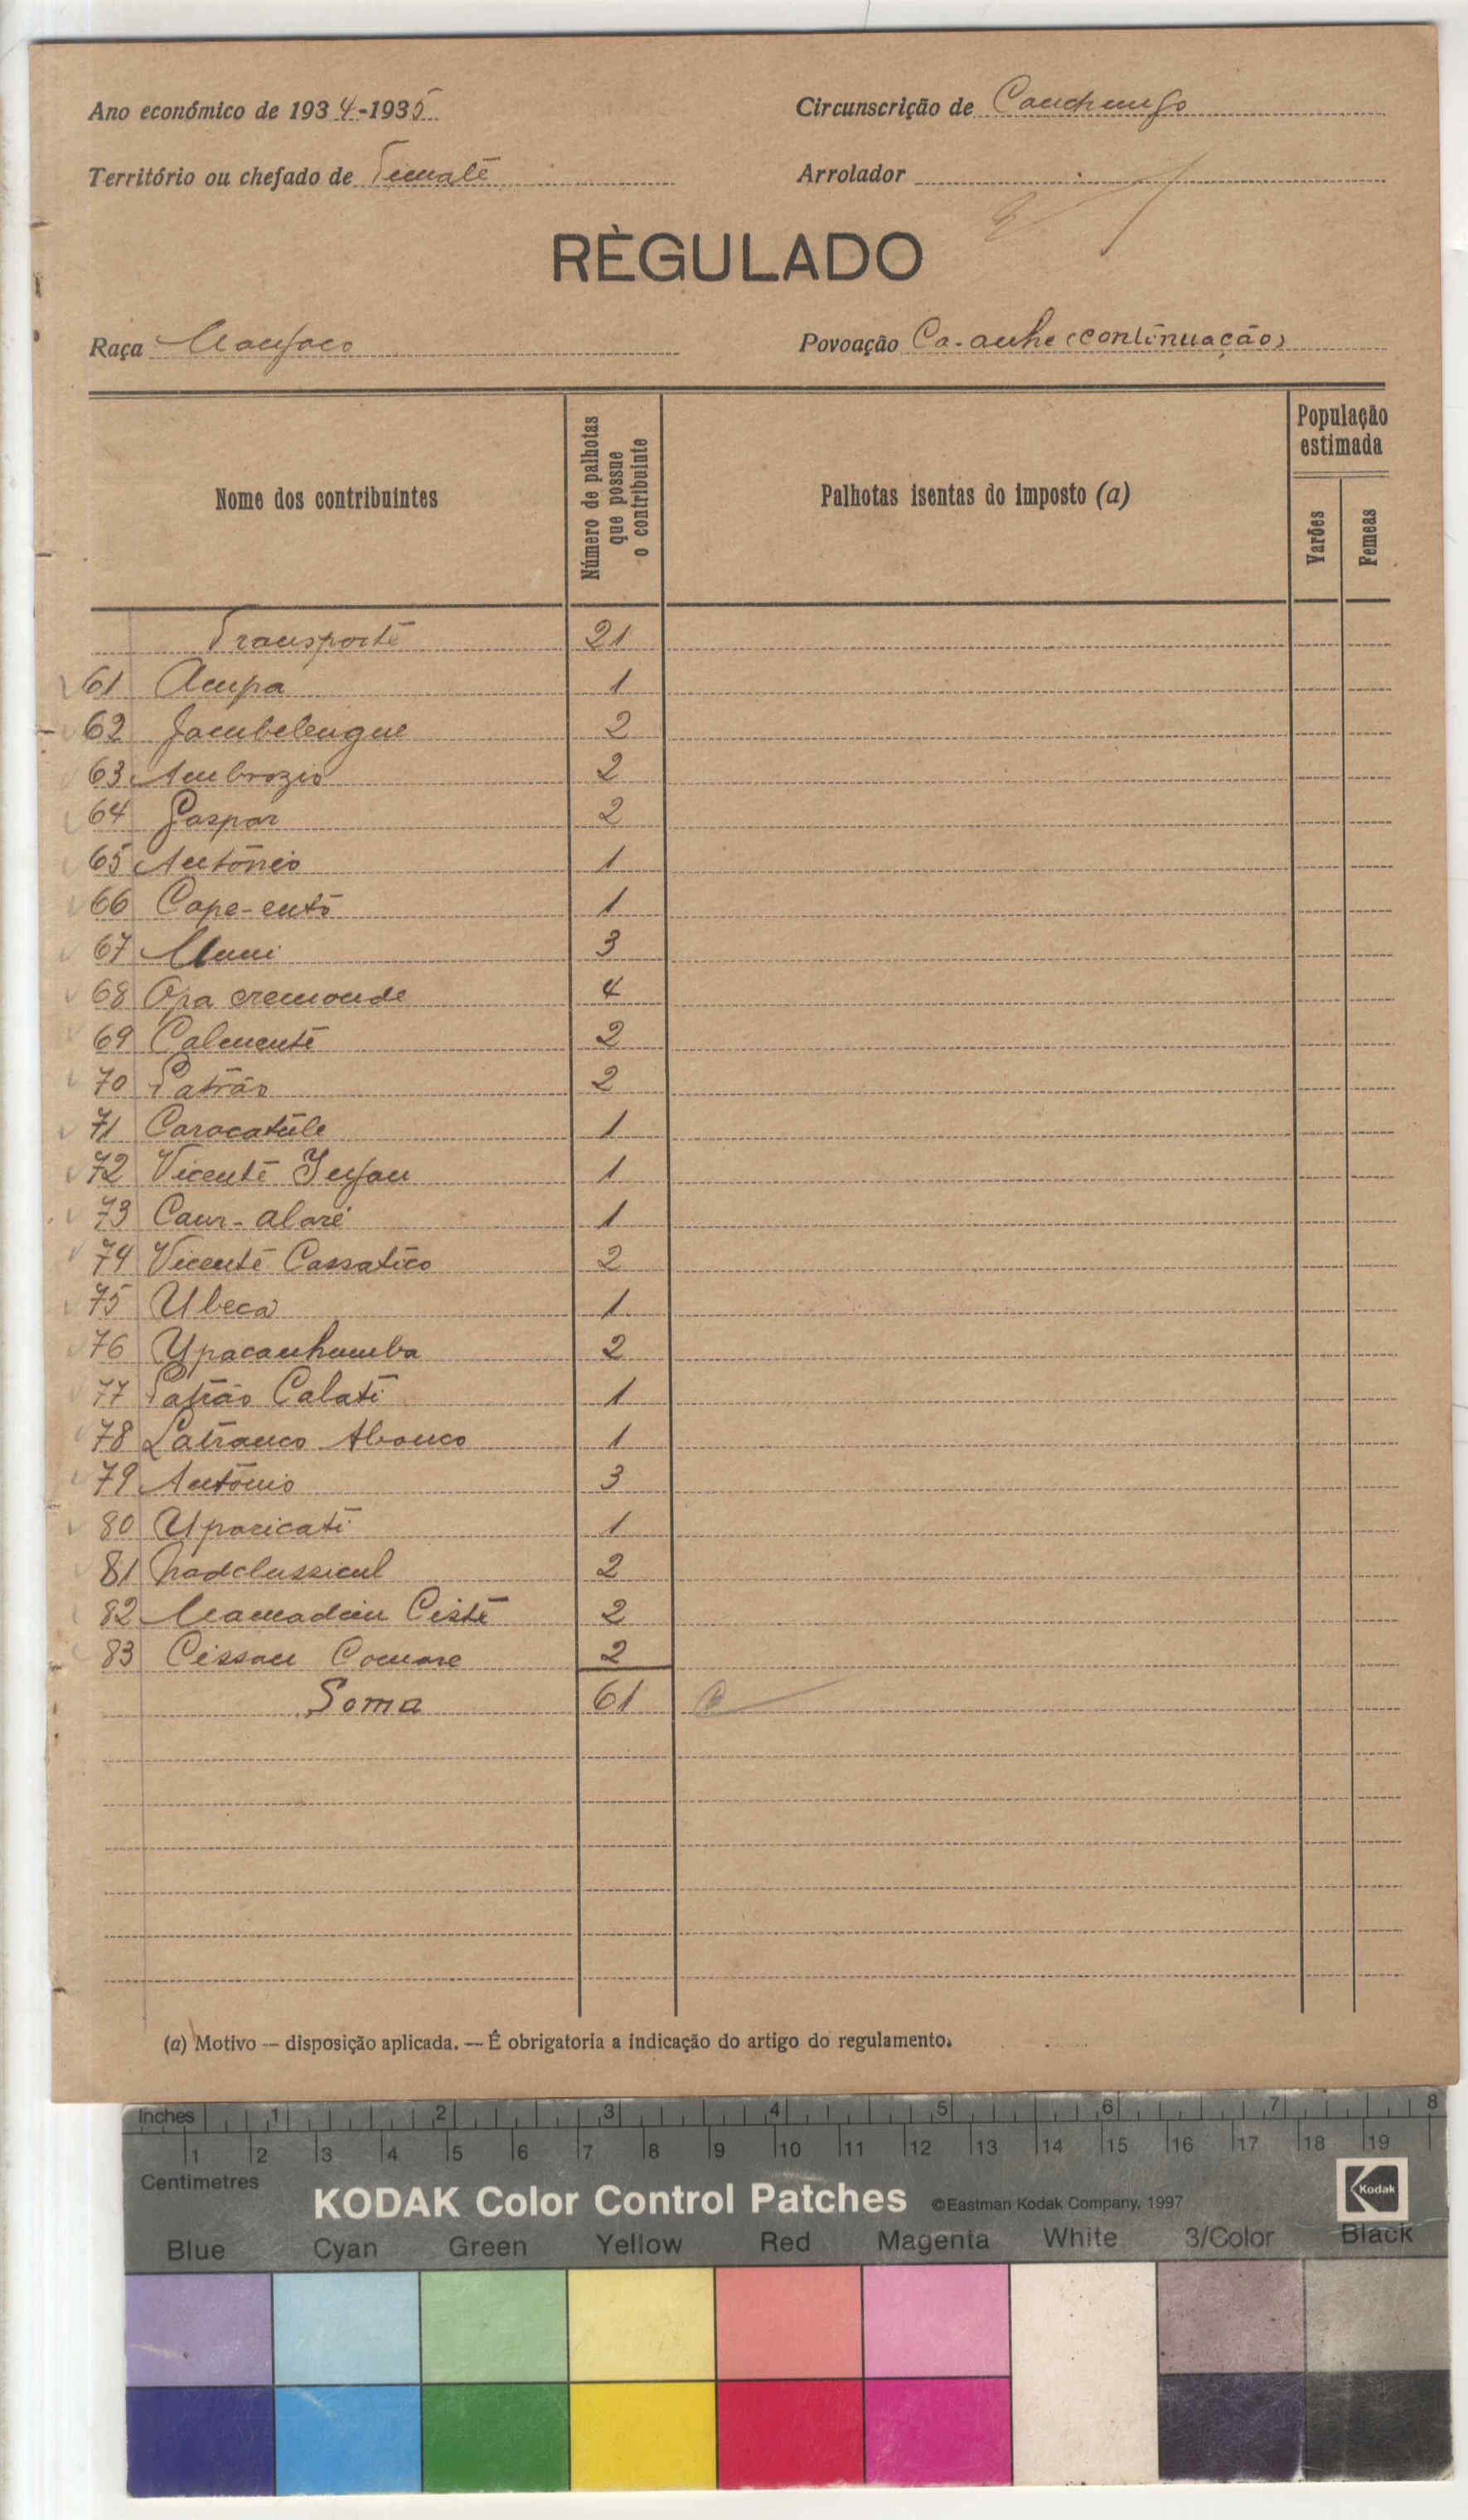 Ano económico de 1934-1935
Circunscrição de Canchungo
Território ou chefado de
Arrolador
RÈGULADO
Raça Manjaco
Povoação Ca-anhe (continuação)
Nome dos contribuintes
Número de palhotas que possue o contribuinte
Palhotas isentas do imposto (a)
População estimada
Varões
Femeas
Transporte 21
61 Acupa 1
62 Jambelengue 2
63 Ambrozio 2
64 Gaspar 2
65 António 1
66 Cape-entó 1
67 3
68 Opa cremonde 4
69 Calmenté 2
70 Patrão 2
71 Caracatúle 1
72 Vicente 1
73 Caur-alaré 1
74 Vicente Cassatico 2
75 Ubeca 1
76 Upacanhumba 2
77 Patrão Calati 1
78 1
79 António 3
80 Uparicati 1
81 2
82 Mamadciu Cisté 2
83 Cissau Comare 2
Soma 61
(a) Motivo — disposição aplicada. — É obrigatoria a indicação do artigo do regulamento.
Inches 1 2 3 4 5 6 7 8
1 2 3 4 5 6 7 8 9 10 11 12 13 14 15 16 17 18 19
Centimetres
KODAK Color Control Patches ©Eastman Kodak Company, 1997 Kodak
Blue Cyan Green Yellow Red Magenta White 3/Color Black